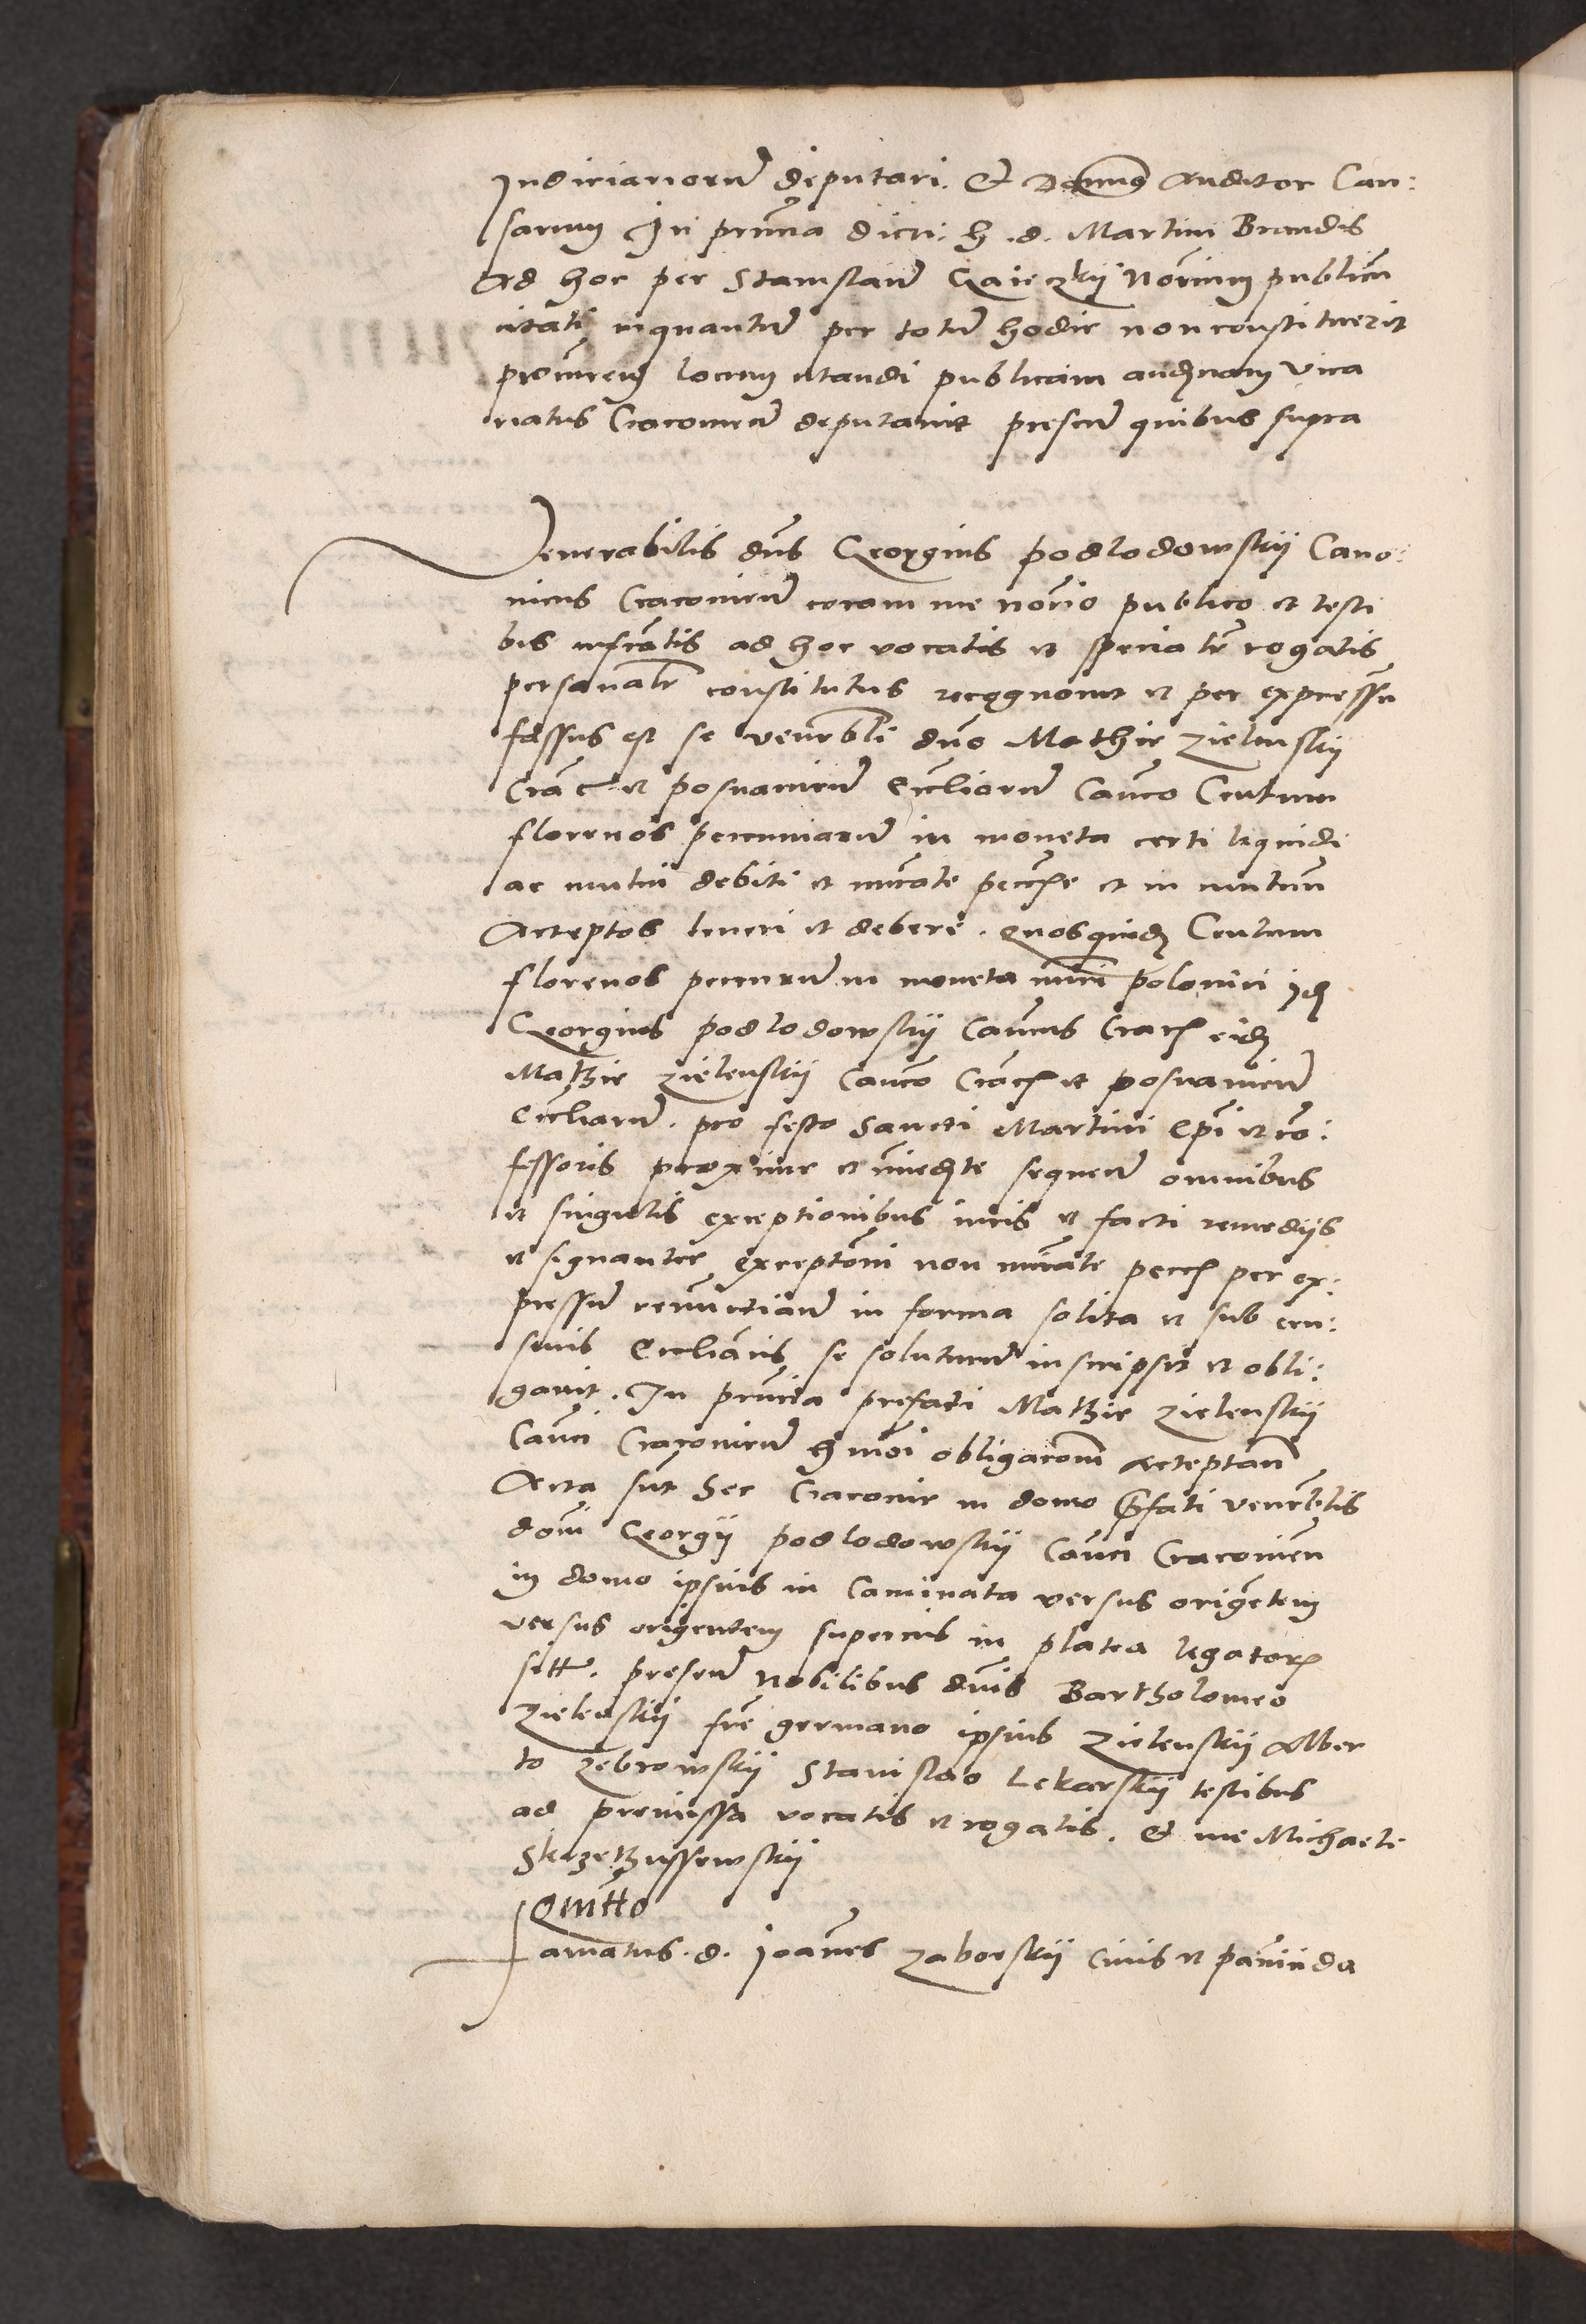 Judiciariorum deputari. Et Dominus Auditor Cau:
sarum In pñtia dicti. h. d. Martini Brandis
Ad hoc per Stanislaum Gaieczkÿ Notrium publicũ
citati inquantum per totum hodie non constituerit
procurem locum citandi publicam audienam Vica
riatus Cracouien deputauit presen quibus supra
Venerabilis dns Georgius podlodowskij Cano:
nicus Cracouien coram me notrio publico et testi
bus infrctis ad hoc vocatis et specialr rogatis
personalr constitutus recognouit et per expressũ
fassus est se venerbli dno Mathie zielenskij
Crac et posnanien Eccliarum Canco Centum
florenos pecuniarũ in moneta certi liquidi
ac mutui debiti et nurate peccie et in mutuũ
Acceptos teneri et debere. Quosquidem Centum
florenos pecuniarũ in moneta nũri polonici Idem
Georgius podlodowskij Canicus Crac eidem
Mathie zielenskij Canco Crac et posnanien
Eccliarũ. pro festo Sancti Martini Epi et co:
fessoris proxime et imediate sequen omnibus
et singulis exceptionibus iuris et facti remedijs
et signanter exceptõni non nurate pecc per ex:
pressum renuntiand in forma solita et sub cen:
suris Eccliasticis se soluturum inscripsit et obli:
gauit. In pñtia prefati Mathie zielenskij
Canci Cracouien hmõi obligacom acceptan
Acta sunt hec Cracouie in domo prefati venerblis
domi Georgij podlodowskij Canci Cracouien
in domo ipsius in Caminata versus orientem
versus orientem superius in platea legatorum
sitt. presen Nobilibus dnis Bartholomeo
Zielenskij fre germano ipsius Zielenskij Alber
to zebrowskij Stanislao Lekarskij testibus
ad premissa vocatis et rogatis. Et me Michaele
Skrzethussewskij
Quittõ
Famatus. d. Joannes zaborskij Ciuis et